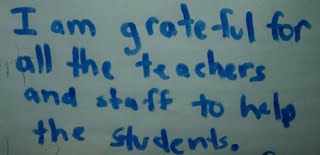 I am grateful for
all the teachers
and staff to help
the students.